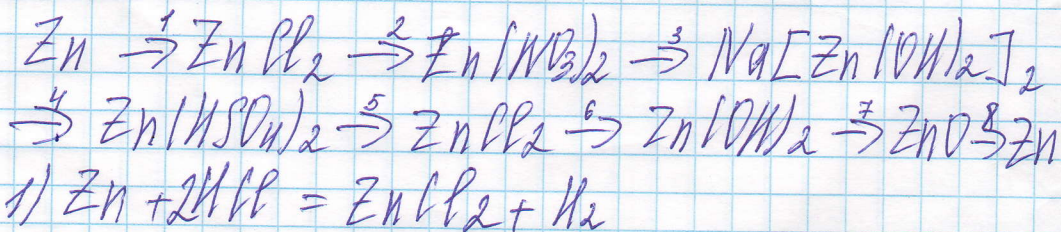 Zn →¹ ZnCl₂ →² Zn(NO₃)₂ →³ Na[Zn(OH)₂]₂
→⁴ Zn(HSO₄)₂ →⁵ ZnCl₂ →⁶ Zn(OH)₂ →⁷ ZnO →⁸ Zn
1) Zn + 2HCl = ZnCl₂ + H₂